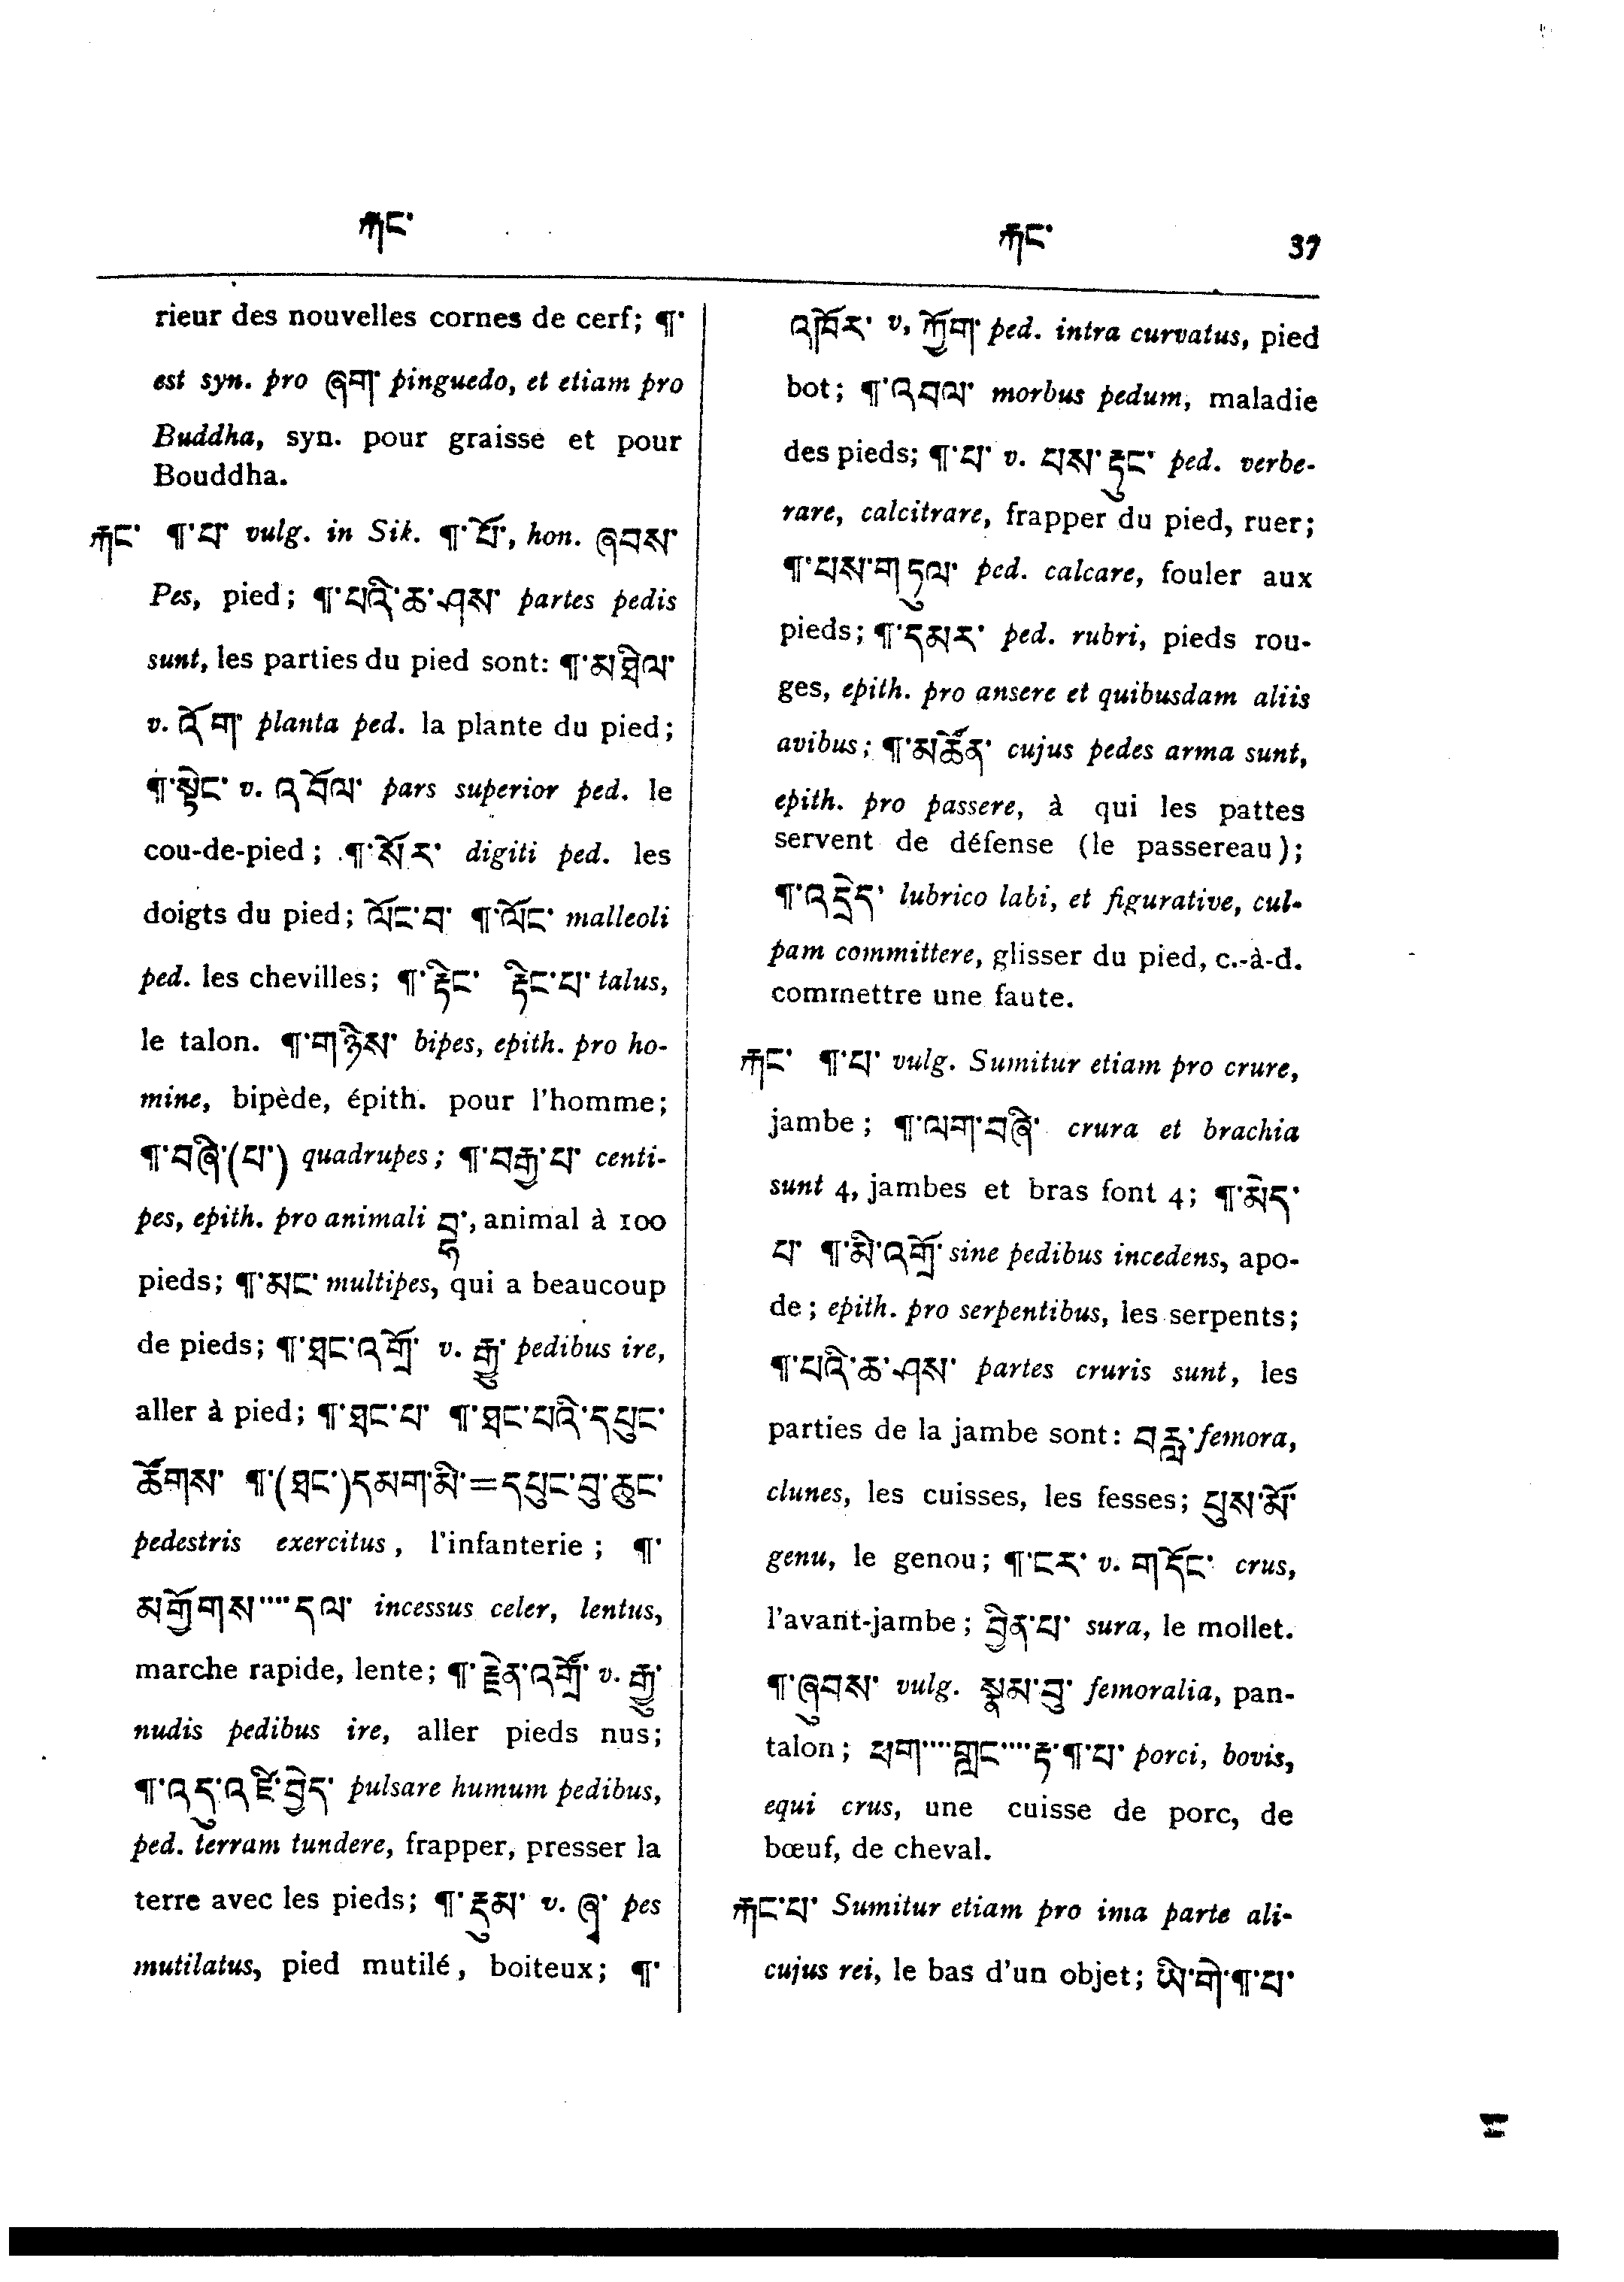 རྐང་
རྐང་ 37
rieur des nouvelles cornes de cerf; ¶་
est syn. pro ཞག་ pinguedo, et etiam pro
Buddha, syn. pour graisse et pour
Bouddha.
རྐང་ ¶་པ་ vulg. in Sik. ¶་པོ་, hon. ཞབས་
Pes, pied; ¶་པའི་ཆ་ཤས་ partes pedis
sunt, les parties du pied sont: ¶་མཐིལ་
v. འོག་ planta ped. la plante du pied;
¶་སྟེང་ v. འབོལ་ pars superior ped. le
cou-de-pied; ¶་སོར་ digiti ped. les
doigts du pied; ལོང་བ་ ¶་ལོང་ malleoli
ped. les chevilles; ¶་རྟིང་ རྟིང་པ་ talus,
le talon. ¶་གཉིས་ bipes, epith. pro ho-
mine, bipède, épith. pour l'homme;
¶་བཞི་(པ་) quadrupes; ¶་བརྒྱ་པ་ centi-
pes, epith. pro animali , animal à 100
pieds; ¶་མང་ multipes, qui a beaucoup
de pieds; ¶་ཐང་འགྲོ་ v. རྒྱུ་ pedibus ire,
aller à pied; ¶་ཐང་པ་ ¶་ཐང་པའི་དཔུང་
ཚོགས་ ¶་(ཐང་)དམག་མི་=དཔུང་བུ་ཆུང་
pedestris exercitus, l'infanterie; ¶་
མགྱོགས་····དལ་ incessus celer, lentus,
marche rapide, lente; ¶་རྗེན་འགྲོ་ v. རྒྱུ་
nudis pedibus ire, aller pieds nus;
¶་འདུ་འཛི་བྱེད་ pulsare humum pedibus,
ped. terram tundere, frapper, presser la
terre avec les pieds; ¶་རྡུམ་ v. ཞ་ pes
mutilatus, pied mutilé, boiteux; ¶་
འཁོར་ v. ཀྱོག་ ped. intra curvatus, pied
bot; ¶་འབལ་ morbus pedum, maladie
des pieds; ¶་པ་ v. པས་རྡུང་ ped. verbe-
rare, calcitrare, frapper du pied, ruer;
¶་པས་གདུལ་ ped. calcare, fouler aux
pieds; ¶་དམར་ ped. rubri, pieds rou-
ges, epith. pro ansere et quibusdam aliis
avibus; ¶་མཚོན་ cujus pedes arma sunt,
epith. pro passere, à qui les pattes
servent de défense (le passereau);
¶་འདྲེད་ lubrico labi, et figurative, cul-
pam committere, glisser du pied, c.-à-d.
commettre une faute.
རྐང་ ¶་པ་ vulg. Sumitur etiam pro crure,
jambe; ¶་ལག་བཞི་ crura et brachia
sunt 4, jambes et bras font 4; ¶་མེད་
པ་ ¶་མི་འགྲོ་ sine pedibus incedens, apo-
de; epith. pro serpentibus, les serpents;
¶་པའི་ཆ་ཤས་ partes cruris sunt, les
parties de la jambe sont: བརླ་ femora,
clunes, les cuisses, les fesses; པུས་མོ་
genu, le genou; ¶་ངར་ v. གདོང་ crus,
l'avant-jambe; བྱིན་པ་ sura, le mollet.
¶་ཞུབས་ vulg. སྣམ་བུ་ femoralia, pan-
talon; ཕག་····གླང་····རྟ་¶་པ་ porci, bovis,
equi crus, une cuisse de porc, de
bœuf, de cheval.
རྐང་པ་ Sumitur etiam pro ima parte ali-
cujus rei, le bas d'un objet; ཡི་གེ་¶་པ་